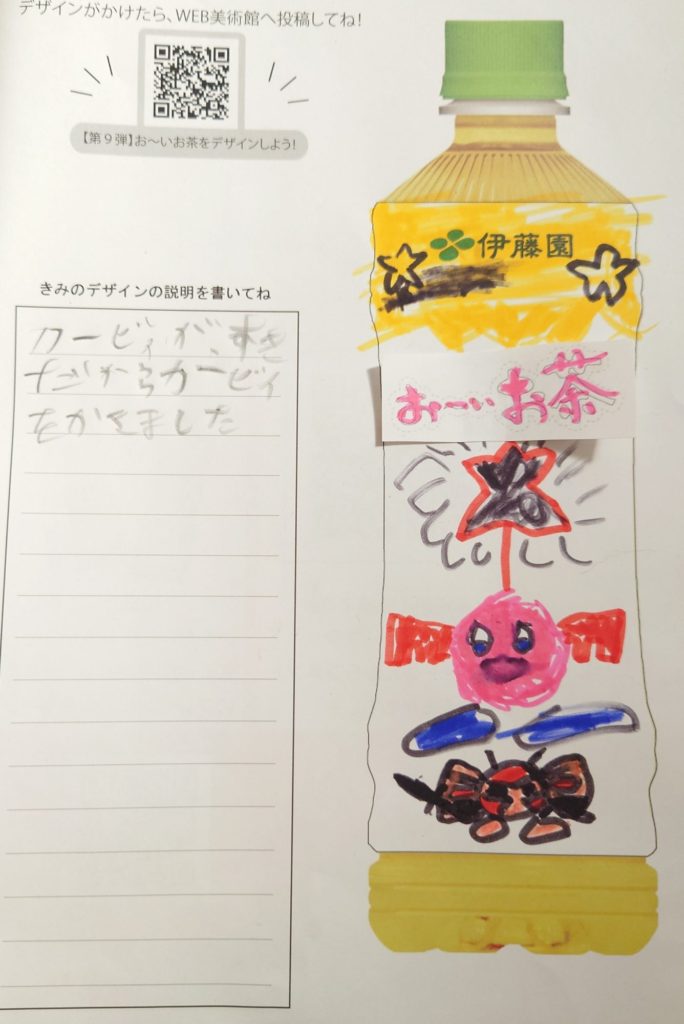 デザインがかけたら、WEB美術館へ投稿してね!
【第9弾】お〜いお茶をデザインしよう!
伊藤園
お〜いお茶
きみのデザインの説明を書いてね
カービィが、すき
だからカービィ
をかきました